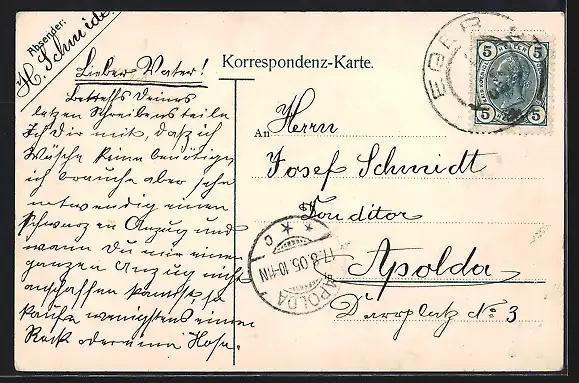 Absender:
H. Schmidt
Lieber Vater!
Betreffs Deines
letzen Schreibens teile
Ich Dir mit, dasz ich
Wäsche keine benötige,
ich brauche aber sehr
notwendig einen
schwarzen Anzug und
wenn Du mir einen
ganzen Anzug nicht
anschaffen kannst so
kaufe wenigstens einen
Rock oder eine Hose.
Korrespondenz-Karte.
An Herrn
Josef Schmidt
Konditor
in Apolda
Darrplatz No 3
EGER
5 5
5 5
APOLDA
17.8.05.10-11N
* c